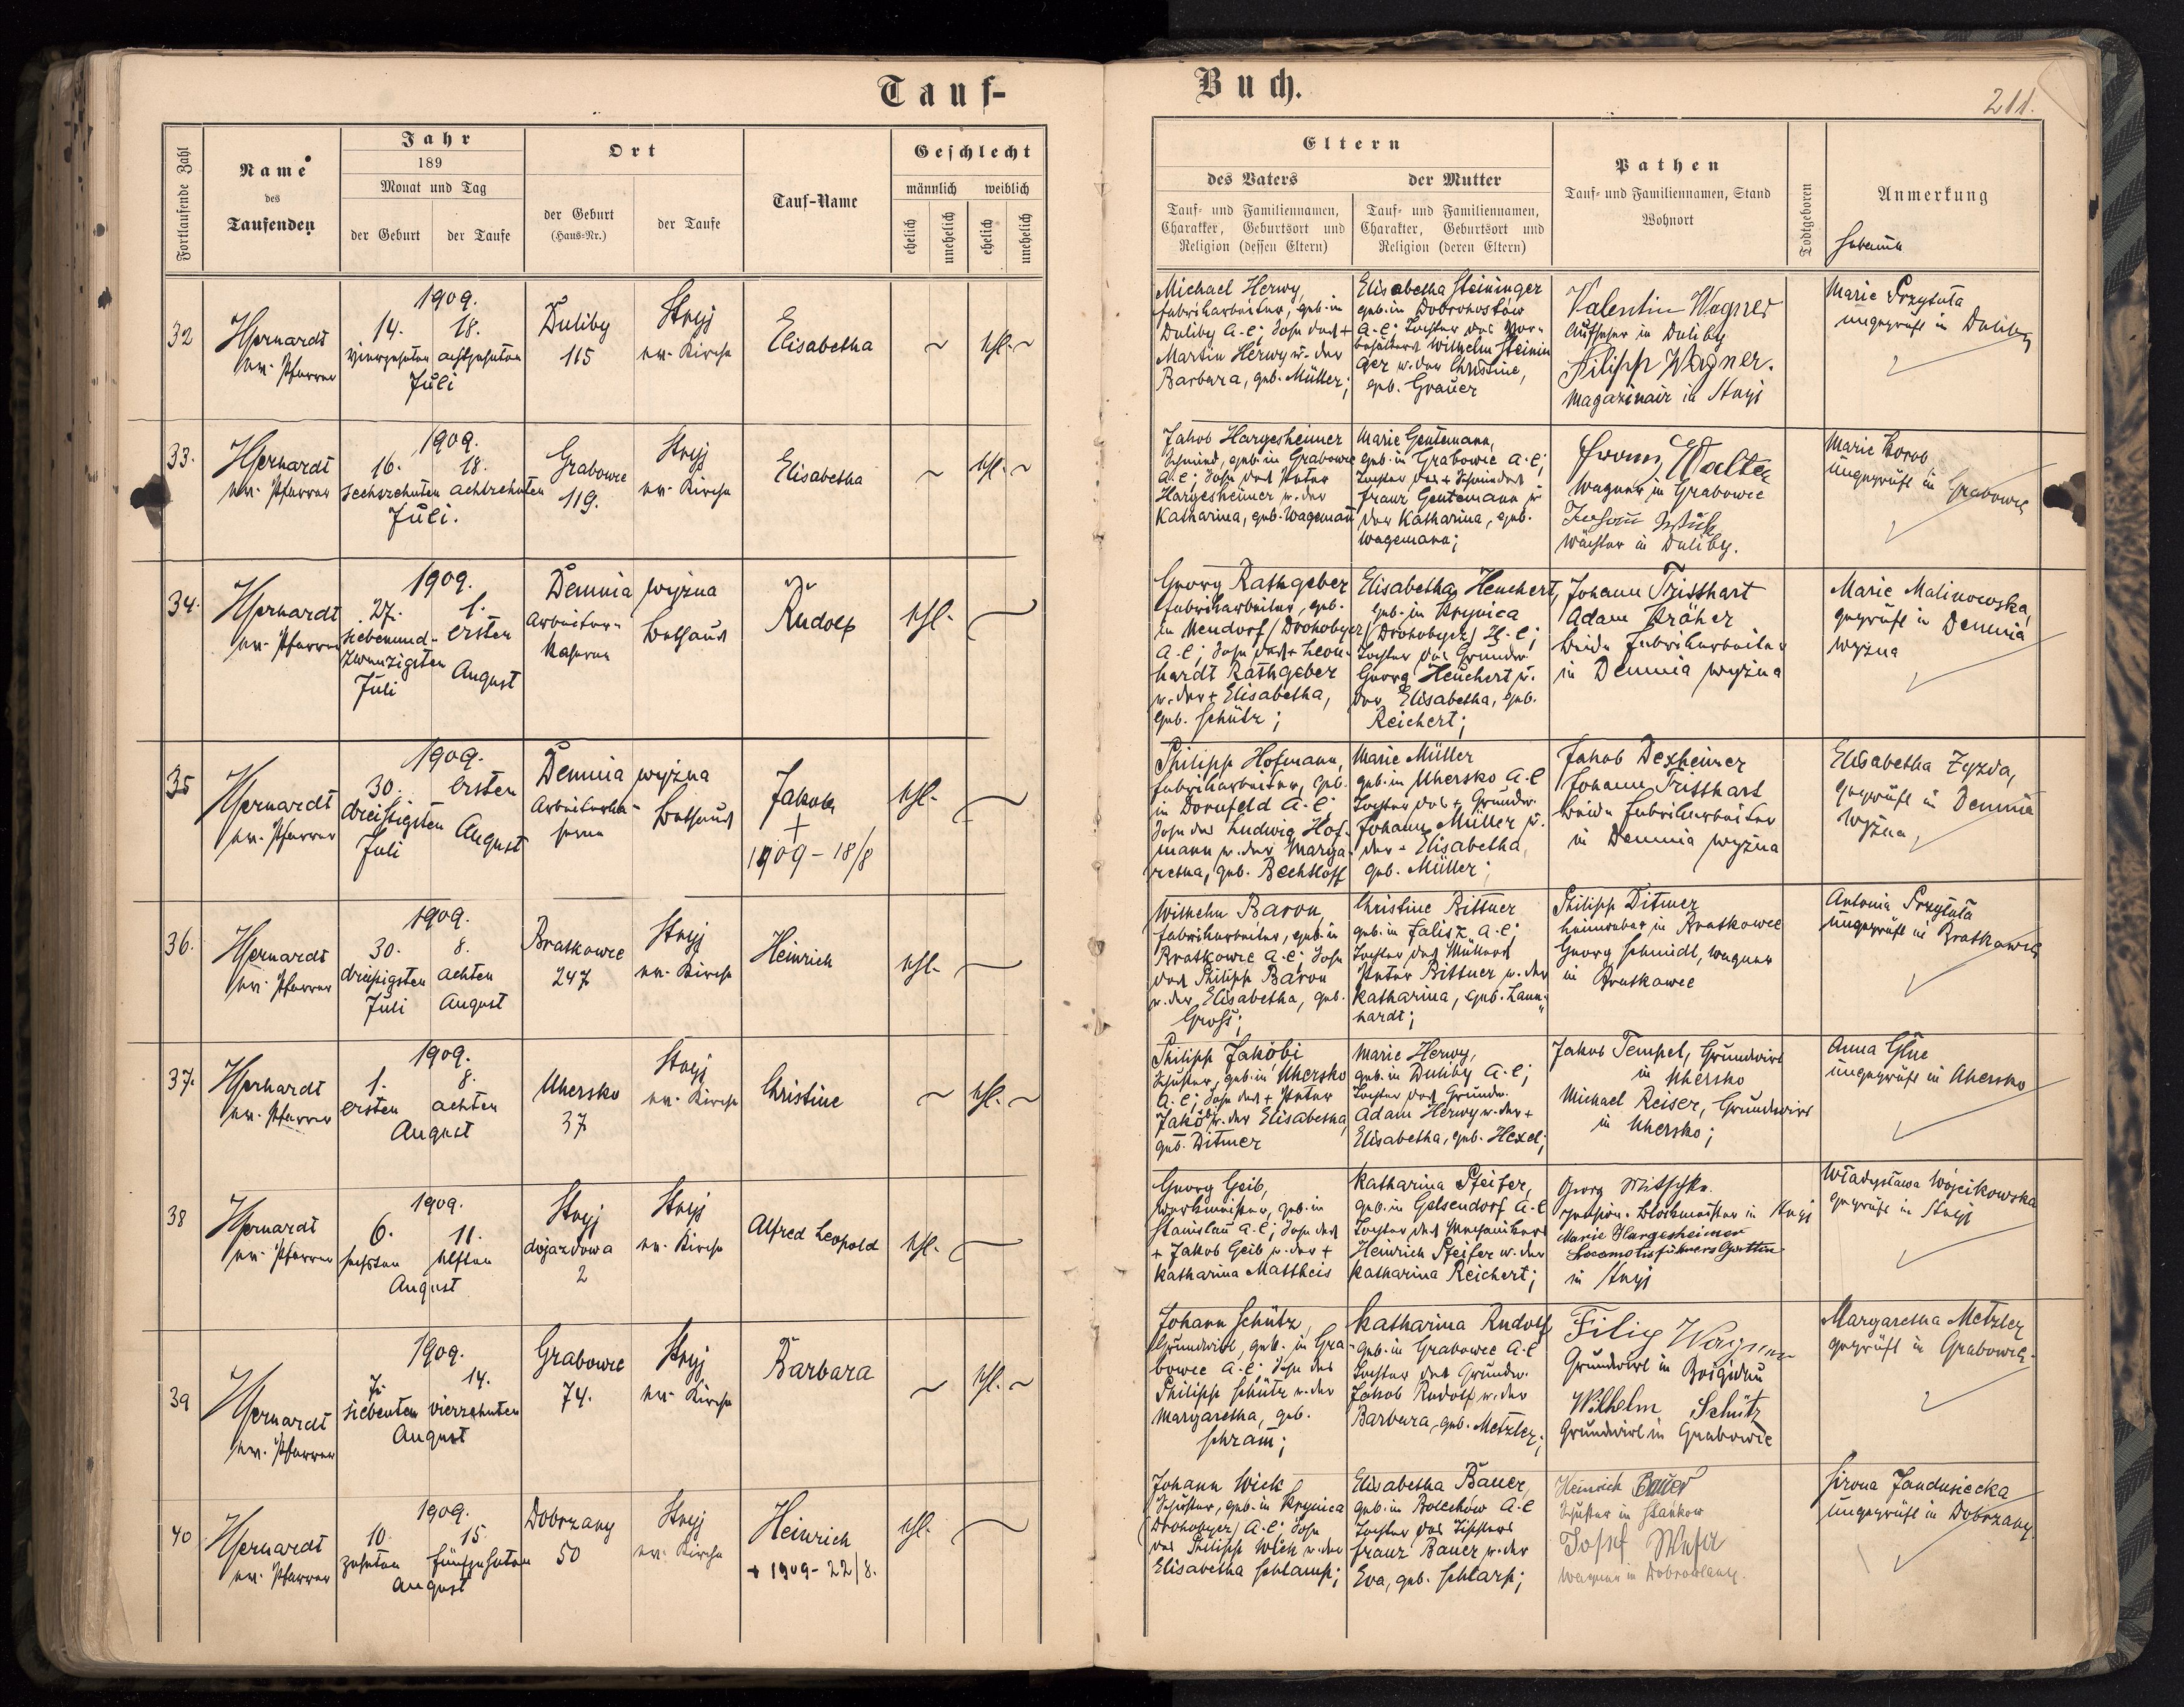 Tauf-
Buch.
211.
Fortlaufende Zahl
Name
des
Taufenden
Jahr
189
Monat und Tag
der Geburt
der Taufe
Ort
der Geburt
(Haus-Nr.)
der Taufe
Tauf-Name
Geschlecht
männlich
weiblich
ehelich
unehelich
ehelich
unehelich
Eltern
des Vaters
Tauf- und Familiennamen,
Charakter, Geburtsort und
Religion (dessen Eltern)
der Mutter
Tauf- und Familiennamen,
Charakter, Geburtsort und
Religion (deren Eltern)
Pathen
Tauf- und Familiennamen, Stand
Wohnort
Todtgeboren
Anmerkung
Hebamme
32
ev. Pfarrer
1909.
14. 18.
vierzehnten achtzehnten
Juli
Duliby
115
Stryj
ev. Kirche
Elisabetha
ehl.
Michael Herwy,
Fabriksarbeiter, geb. in
Duliby A. C; Sohn des +
Martin Herwy u. der
Barbara, geb. Müller;
Elisabetha Steininger
geb. in Dobrohostów
A. C; Tochter des Vor-
Wilhelm Steinin
ger u. der Christine,
geb. Grauer
Valentin Wagner
Aufseher in Duliby
Filipp Wagner.
Magazinair in Stryj
Marie Przytuła
ungeprüft in Duliby
33.
ev. Pfarrer
1909.
16. 18.
sechszehnten achtzehnten
Juli.
Grabowce
119.
Stryj
ev. Kirche
Elisabetha
ehl.
Jakob Hargesheimer
Schmied, geb. in Grabowce
A. C; Sohn des Peter
Hargesheimer u. der
Katharina, geb. Wagemann
Marie Gentemann,
geb. in Grabowce A. C;
Tochter des + Schmiedes
Franz Gentemann u.
der Katharina, geb.
Wagemann;
Franz Walter
Wagner in Grabowce
Johann
Wächter in Duliby.
Marie
ungeprüft in Grabowce
34.
ev. Pfarrer
1909.
27. 1.
siebenund- ersten
zwanzigsten
Juli August
Demnia wyżna
Arbeiter-
kaserne
Bethaus
Rudolf
ehl.
Georg Rathgeber
Fabriksarbeiter, geb.
in Neudorf (Drohobycz)
A. C; Sohn des + Leon-
hardt Rathgeber
u. der + Elisabetha,
geb. Schütz;
Elisabetha Heuchert,
geb. in Krynica
(Drohobycz) H. C;
Tochter des Grundw.
Georg Heuchert u.
der Elisabetha, geb.
Reichert;
Johann Tritthart
Adam Kräher
beide Fabriksarbeiter
in Demnia wyżna
Marie Malinowska,
geprüft in Demnia
wyżna
35
ev. Pfarrer
1909.
30. ersten
dreißigsten
Juli August
Demnia wyżna
Arbeiterka-
serne
Bethaus
Jakob
+
1909 - 18/8
ehl.
Philipp Hofmann,
Fabriksarbeiter, geb.
in Dornfeld A. C.
Sohn des Ludwig Hof-
mann u. der Marga-
retha, geb. Bechtloff
Marie Müller
geb. in Uhersko A. C
Tochter des + Grundw.
Johann Müller u.
der + Elisabetha,
geb. Müller;
Jakob Dexheimer
Johann Tritthart
beide Fabriksarbeiter
in Demnia wyżna
Elisabetha Zyzda,
geprüft in Demnia
wyżna,
36.
ev. Pfarrer
1909.
30. 8.
dreißigsten achten
Juli August
Bratkowce
247
Stryj
ev. Kirche
Heinrich
ehl.
Wilhelm Baron,
Fabriksarbeiter, geb. in
Bratkowce A. C; Sohn
des Philipp Baron
u. der Elisabetha, geb.
Groß;
Christine Bittner
geb. in Falisz A. C;
Tochter des Müllers
Peter Bittner u. der
Katharina, geb. Laun-
hardt;
Philipp Ditmer
in Bratkowce
Georg Schmidt, Wagner
in Bratkowce
Antonia Przytuła
ungeprüft in Bratkowce
37.
ev. Pfarrer
1909.
1. 8.
ersten achten
August
Uhersko
37
Stryj
ev. Kirche
Christine
ehl.
Philipp Jakobi
Schuster, geb. in Uhersko
A. C; Sohn des + Peter
Jakobi u. der Elisabetha,
geb. Ditmer
Marie Herwy,
geb. in Duliby A. C;
Tochter des Grundw.
Adam Herwy u. der +
Elisabetha, geb. Hexel;
Jakob Tempel, Grundwirt
in Uhersko
Michael Reiser, Grundwirt
in Uhersko;
Anna
ungeprüft in Uhersko
38
ev. Pfarrer
1909.
6. 11.
sechsten elften
August
Stryj
dojazdowa
2
Stryj
ev. Kirche
Alfred Leopold
ehl.
Georg Geib,
Werkmeister, geb. in
Stanislau A. C; Sohn des
+ Jakob Geib u. der +
Katharina Mattheis
Katharina Pfeifer,
geb. in Gelsendorf A. C
Tochter des Mechanikers
Heinrich Pfeifer u. der
Katharina Reichert;
Georg Mitschke
pension. Blockmeister in Stryj
Marie Hargesheimer
Locomotivführers Gattin
in Stryj
Władysława Wójcikowska
geprüft in Stryj
39
ev. Pfarrer
1909.
7. 14.
siebenten vierzehnten
August
Grabowce
74.
Stryj
ev. Kirche
Barbara
ehl.
Johann Schütz,
Grundwirt, geb. in Gra-
bowce A. C; Sohn des
Philipp Schütz u. der
Margaretha, geb.
Schram;
Katharina Rudolf
geb. in Grabowce A. C
Tochter des Grundw.
Jakob Rudolf u. der
Barbara, geb. Metzler;
Filip Wagner
Grundwirt in Brigidau
Wilhelm Schütz
Grundwirt in Grabowce
Margaretha Metzler
geprüft in Grabowce.
40
ev. Pfarrer
1909.
10. 15.
zehnten fünfzehnten
August
Dobrzany
50
Stryj
ev. Kirche
Heinrich
+ 1909 - 22/8.
ehl.
Johann Wick
Schuster, geb. in Krynica
(Drohobycz) A. C; Sohn
des Philipp Wick u. der
Elisabetha Schlamp;
Elisabetha Bauer,
geb. in Bolechów A. C
Tochter des Tischlers
Franz Bauer u. der
Eva, geb. Schlarp;
Heinrich Bauer
Schuster in Stankow
Josef
Wagner in
ungeprüft in Dobrzany.